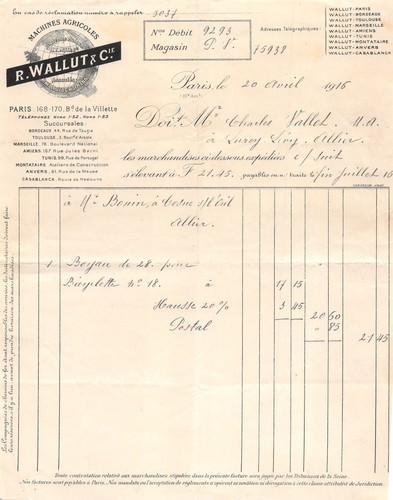 En cas de réclamation numéro à rappeler 9037
MACHINES AGRICOLES
R. WALLUT & Cie
PARIS. 168-170, Bd de la Villette
TÉLÉPHONE NORD 1-52, NORD 1-53
Succursales:
BORDEAUX, 44, Rue de Tauzia
TOULOUSE, 3, Boulvd d'Arcole
MARSEILLE, 78, Boulevard National
AMIENS, 167, Rue Jules Barni
TUNIS, 99, Rue de Portugal
MONTATAIRE, Ateliers de Construction
ANVERS, 81, Rue de la Meuse
CASABLANCA, Route de Mediouna
Nos Débit 9293
Magasin P. V.
75938
Adresses Télégraphiques:
WALLUT-PARIS
WALLUT-BORDEAUX
WALLUT-TOULOUSE
WALLUT-MARSEILLE
WALLUT-AMIENS
WALLUT-TUNIS
WALLUT-MONTATAIRE
WALLUT-ANVERS
WALLUT-CASABLANCA
Paris, le 20 Avril 1916
Doit Mr Charles Vallet, M.A.
à Lurcy Lévy, Allier
les marchandises ci-dessous expédiées c/ Suit
s'élevant à F 21.45 payables en n/ traite fin Juillet 16
à Mr Bonin, à Cosne s/l'Œil
Allier
1 Boyau de 28 pour
Bicyclette no 18. à 17 15
Hausse 20 % 3 45 20 60
Postal " 85
21 45
Toute contestation relative aux marchandises stipulées dans la présente facture sera jugée par les Tribunaux de la Seine.
Nos factures sont payables à Paris. Nos mandats ou l'acceptation de règlements n'opèrent ni novation ni dérogation à cette clause attributive de Juridiction.